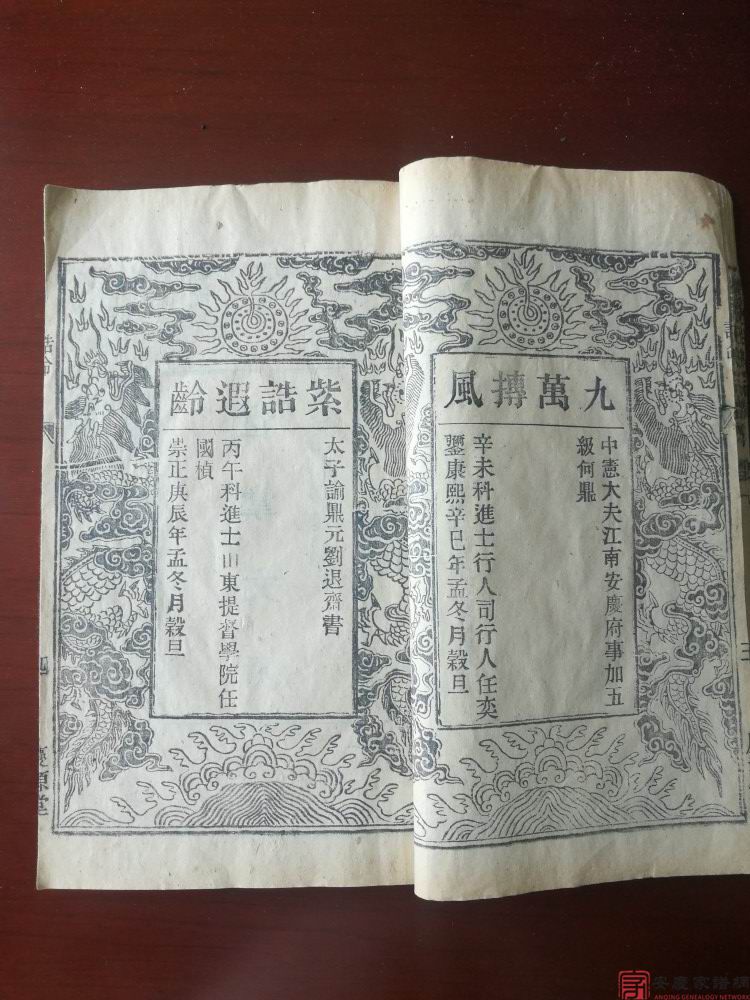 九萬摶風
中憲大夫江南安慶府事加五
級何鼎
辛未科進士行人司行人任奕
鑒康熙辛巳年孟冬月穀旦
紫誥遐齡
太子諭鼎元劉退齋書
丙午科進士山東提督學院任
國楨
崇正庚辰年孟冬月穀旦
誥命
四
安慶家譜網
ANQING GENEALOGY NETWORK